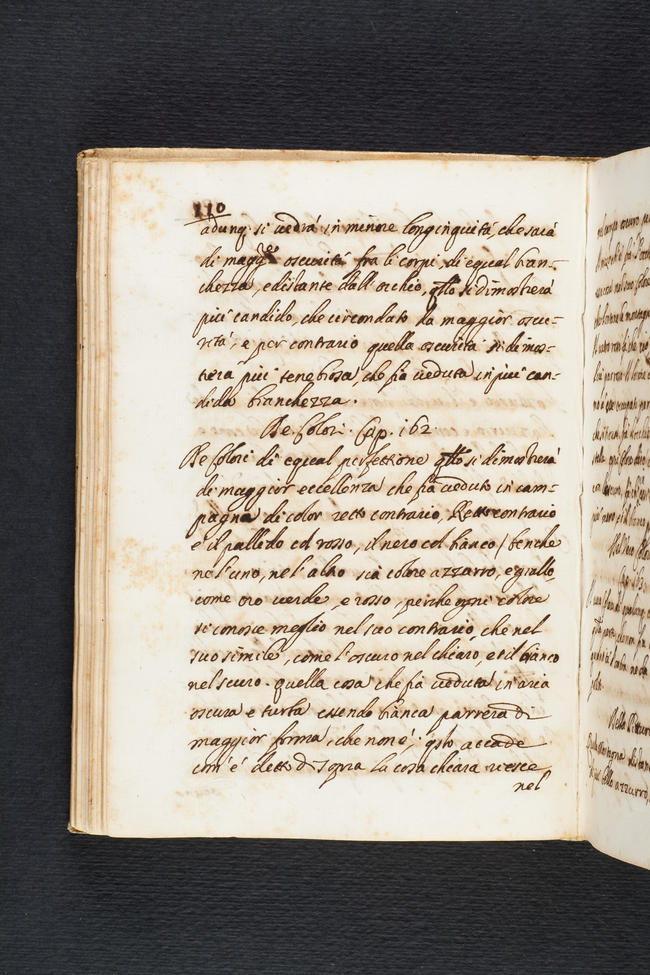 110
adunq; si uedrà in minore longinquità, che sarà
di magg.re oscurità fra li corpi di equal bian-
chezza, e distante dall'occhio, qllo si dimostrerà
più candido, che circondato da maggior oscu-
rità, e per contrario quella oscurità si dimos-
trerà più tenebrosa, che fia ueduta in più can-
dida bianchezza.
De Colori. Cap. 162
De Colori di equal perfettione qllo si dimostrerà
di maggior eccellenza che fia ueduto in cam-
pagna di color retto contrario, Retto contrario
è il pallido col rosso, il nero col bianco / benche
ne l'uno, ne l'altro sia colore azzurro, e giallo
come oro uerde, e rosso, perche ogni colore
si conosce meglio nel suo contrario, che nel
suo simile, come l'oscuro nel chiaro, et il bianco
nel scuro. quella cosa che fia ueduta in aria
oscura e turba essendo bianca parrerà di
maggior forma, che non è, qsto accade
com'è detto di sopra la cosa chiara cresce
nel